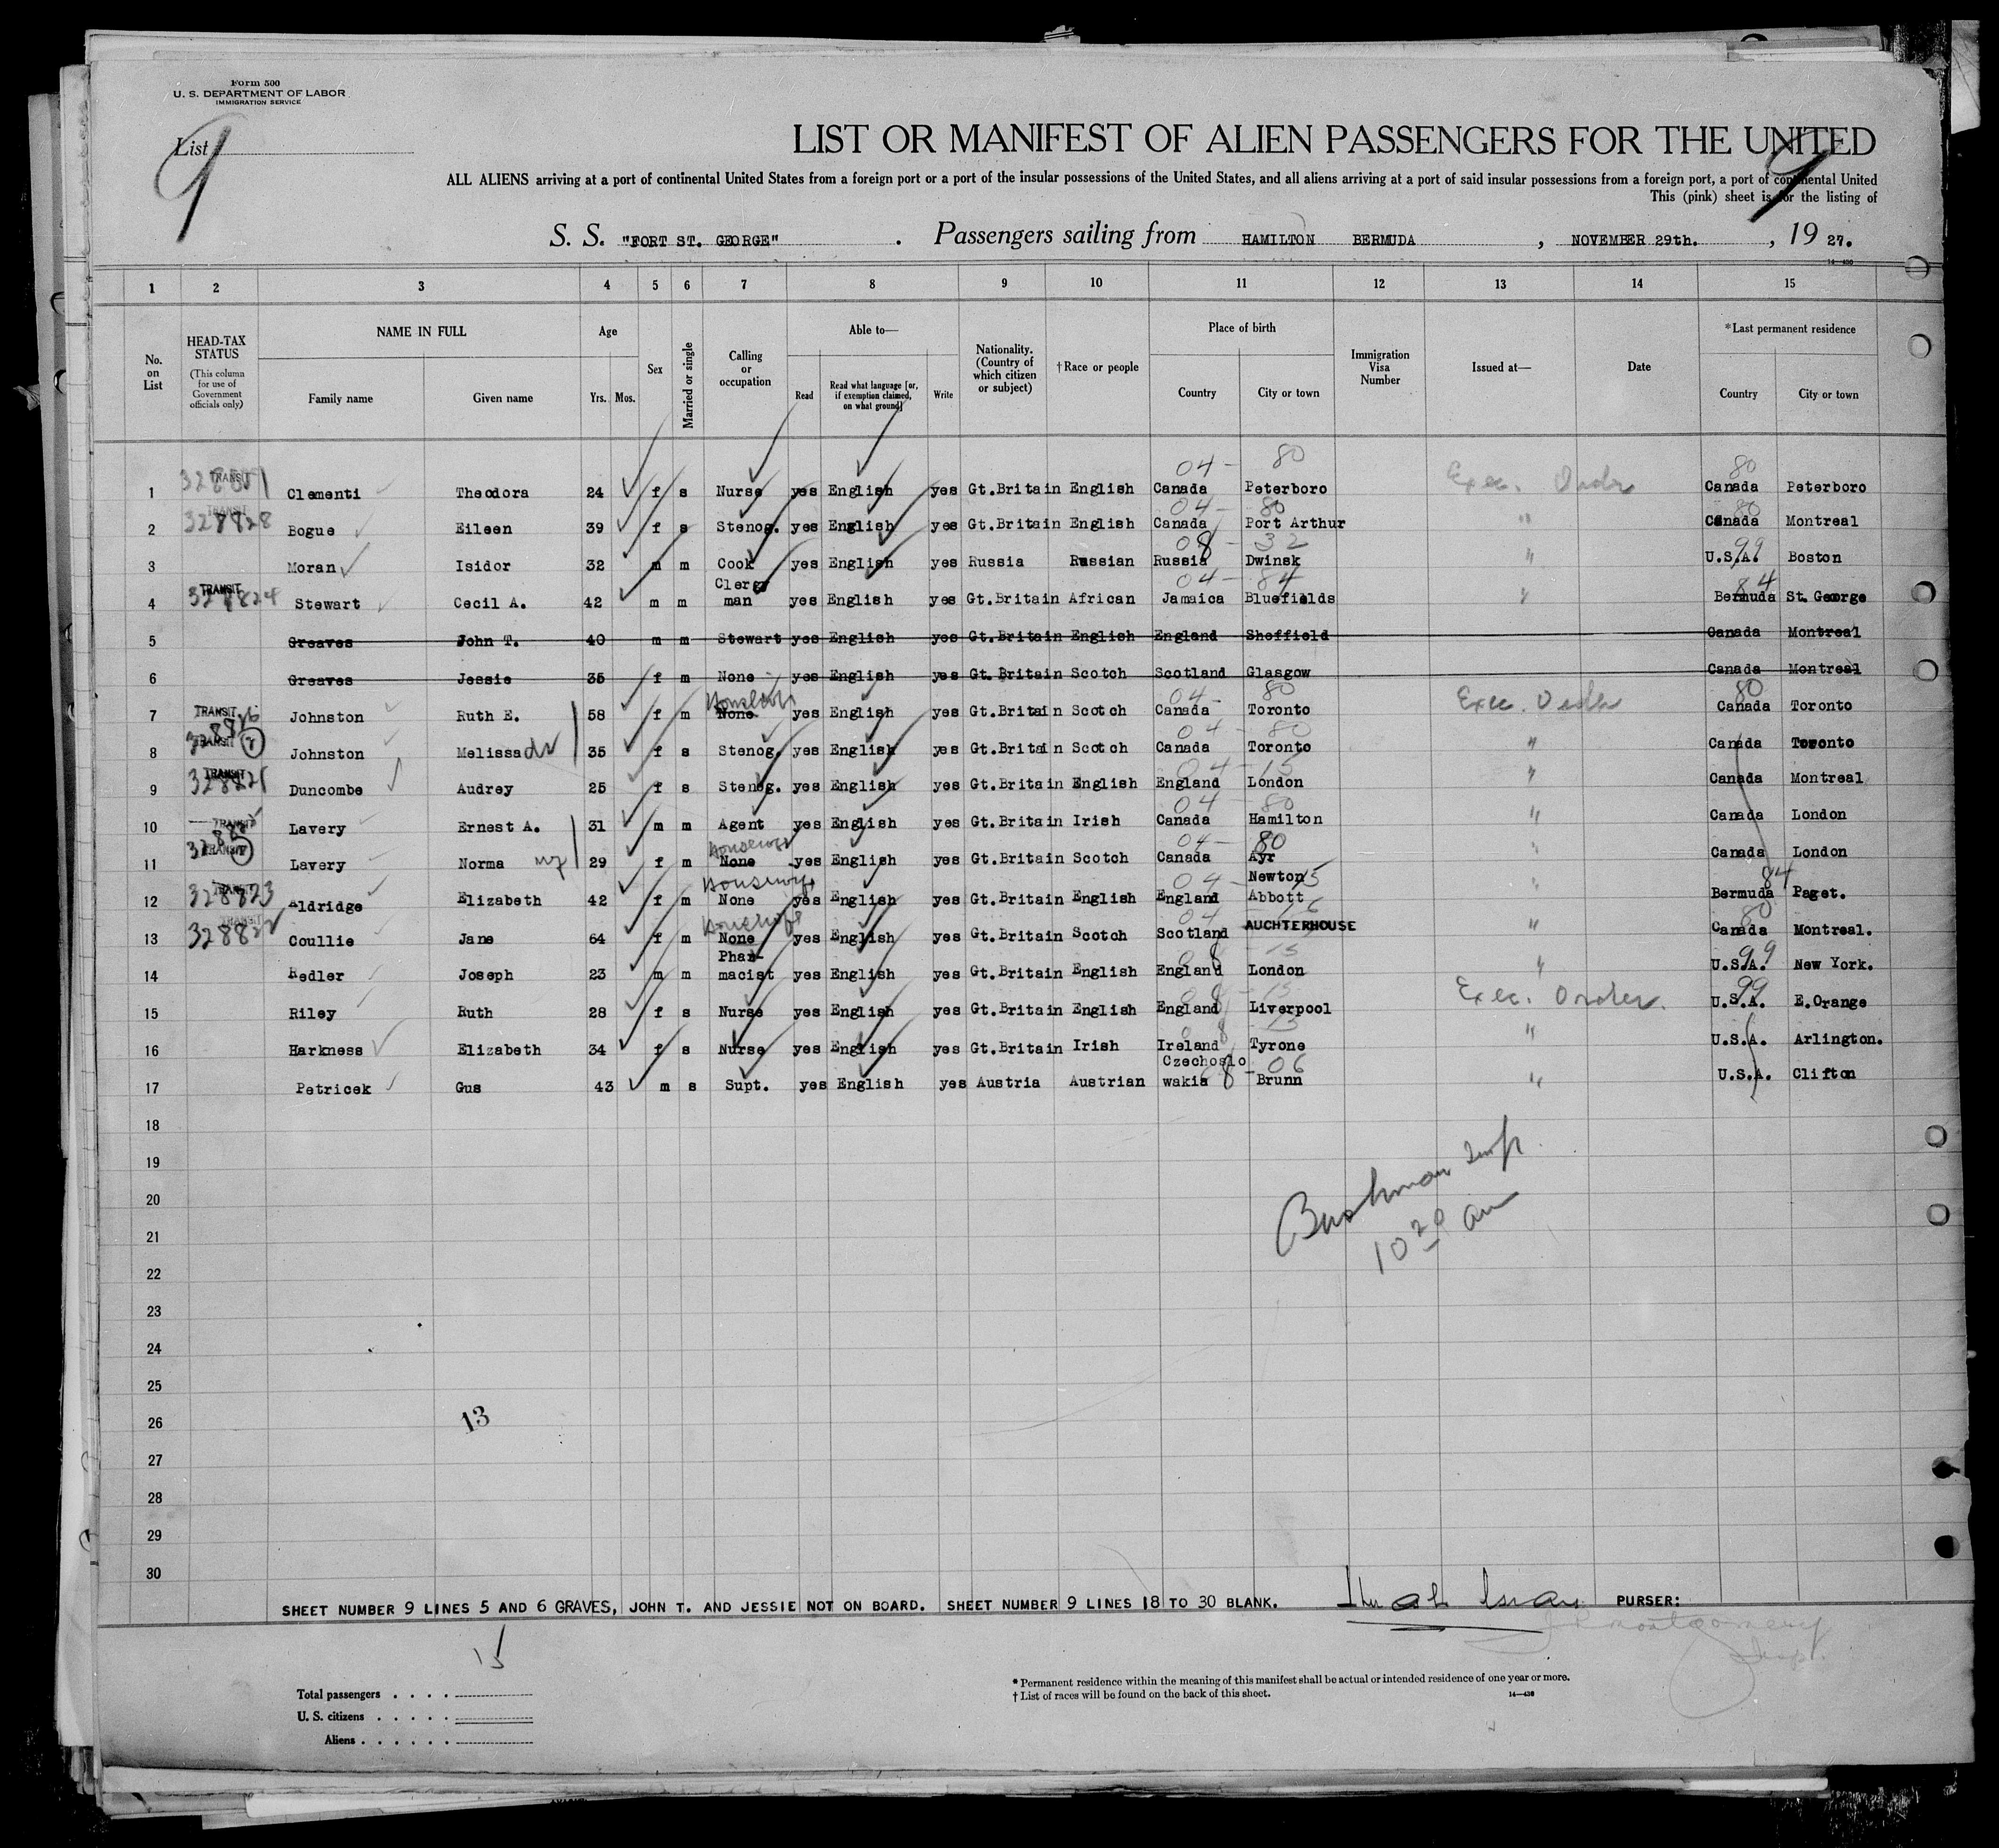 Form 500
U. S. DEPARTMENT OF LABOR
IMMIGRATION SERVICE
List 9
LIST OR MANIFEST OF ALIEN PASSENGERS FOR THE UNITED
9
ALL ALIENS arriving at a port of continental United States from a foreign port or a port of the insular possessions of the United States, and all aliens arriving at a port of said insular possessions from a foreign port, a port of continental United
This (pink) sheet is for the listing of
S. S. "FORT ST. GEORGE" . Passengers sailing from HAMILTON BERMUDA , NOVEMBER 29th. , 19 27.
1 2 3 4 5 6 7 8 9 10 11 12 13 14 15
No. on List
HEAD-TAX STATUS (This column for use of Government officials only)
NAME IN FULL Family name Given name
Age Yrs. Mos.
Sex
Married or single
Calling or occupation
Able to— Read Read what language [or, if exemption claimed, on what ground] Write
Nationality. (Country of which citizen or subject)
†Race or people
Place of birth Country City or town
Immigration Visa Number
Issued at—
Date
*Last permanent residence Country City or town
04 - 80 80
1 TRANSIT Clementi Theodora 24 f s Nurse yes English yes Gt.Britain English Canada Peterboro Exec. Order Canada Peterboro
04 - 80 80
2 TRANSIT 328828 Bogue Eileen 39 f s Stenog. yes English yes Gt.Britain English Canada Port Arthur " Canada Montreal
08 - 32 99
3 Moran Isidor 32 m m Cook yes English yes Russia Russian Russia Dwinsk " U.S.A. Boston
04 - 84 84
4 TRANSIT 328824 Stewart Cecil A. 42 m m Clergyman yes English yes Gt.Britain African Jamaica Bluefields " Bermuda St. George
5 Greaves John T. 40 m m Stewart yes English yes Gt.Britain English England Sheffield Canada Montreal
6 Greaves Jessie 35 f m None yes English yes Gt.Britain Scotch Scotland Glasgow Canada Montreal
Housewife 04 - 80 80
7 TRANSIT Johnston Ruth E. 58 f m None yes English yes Gt.Britain Scotch Canada Toronto Exec. Order Canada Toronto
04 - 80
8 TRANSIT Johnston Melissa 35 f s Stenog. yes English yes Gt.Britain Scotch Canada Toronto " Canada Toronto
04 - 15
9 TRANSIT 328821 Duncombe Audrey 25 f s Stenog. yes English yes Gt.Britain English England London " Canada Montreal
04 - 80
10 TRANSIT Lavery Ernest A. 31 m m Agent yes English yes Gt.Britain Irish Canada Hamilton " Canada London
Housewife 04 - 80
11 TRANSIT Lavery Norma 29 f m None yes English yes Gt.Britain Scotch Canada Ayr " Canada London
Housewife 04 - 15 84
12 TRANSIT 328823 Aldridge Elizabeth 42 f m None yes English yes Gt.Britain English England Newton Abbott " Bermuda Paget.
Housewife 04 - 16 80
13 TRANSIT 328822 Coullie Jane 64 f m None yes English yes Gt.Britain Scotch Scotland AUCHTERHOUSE " Canada Montreal.
08 - 15 99
14 Redler Joseph 23 m m Pharmacist yes English yes Gt.Britain English England London " U.S.A. New York.
08 - 15 99
15 Riley Ruth 28 f s Nurse yes English yes Gt.Britain English England Liverpool Exec. Order. U.S.A. E.Orange
08 - 15
16 Harkness Elizabeth 34 f s Nurse yes English yes Gt.Britain Irish Ireland Tyrone " U.S.A. Arlington.
08 - 06
17 Petricek Gus 43 m s Supt. yes English yes Austria Austrian Czechoslowakia Brunn " U.S.A. Clifton
18
19
20
Bushman Insp.
10 20 am
21
22
23
24
25
26
13
27
28
29
30
SHEET NUMBER 9 LINES 5 AND 6 GRAVES, JOHN T. AND JESSIE NOT ON BOARD. SHEET NUMBER 9 LINES 18 TO 30 BLANK. PURSER:
Montgomery
Insp.
15
Total passengers
U. S. citizens
Aliens
* Permanent residence within the meaning of this manifest shall be actual or intended residence of one year or more.
† List of races will be found on the back of this sheet.
14—430